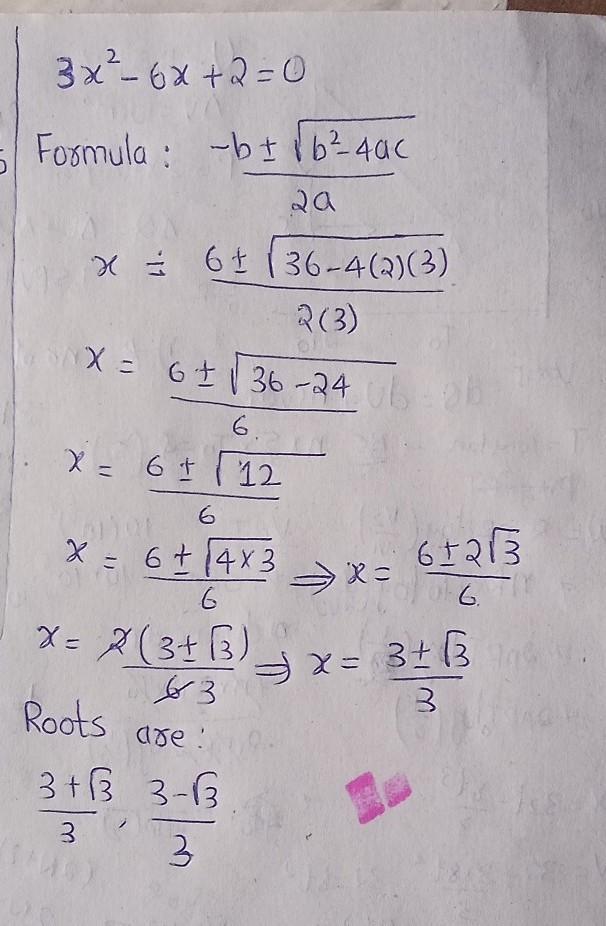 3x² - 6x + 2 = 0
Formula : (-b ± √(b² - 4ac)) / 2a
x = (6 ± √(36 - 4(2)(3))) / 2(3)
x = (6 ± √(36 - 24)) / 6.
x = (6 ± √12) / 6
x = (6 ± √(4×3)) / 6 ⇒ x = (6 ± 2√3) / 6.
x = 2(3 ± √3) / 6 3 ⇒ x = (3 ± √3) / 3
Roots are :
(3 + √3) / 3 , (3 - √3) / 3